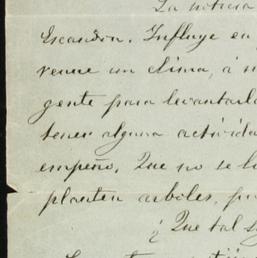 La noticia
Escandón. Influye en
un clima, á
gente para levantarlo
tener alguna activida
empeño. Que no se l
planten arboles, pa
¿ Que tal s